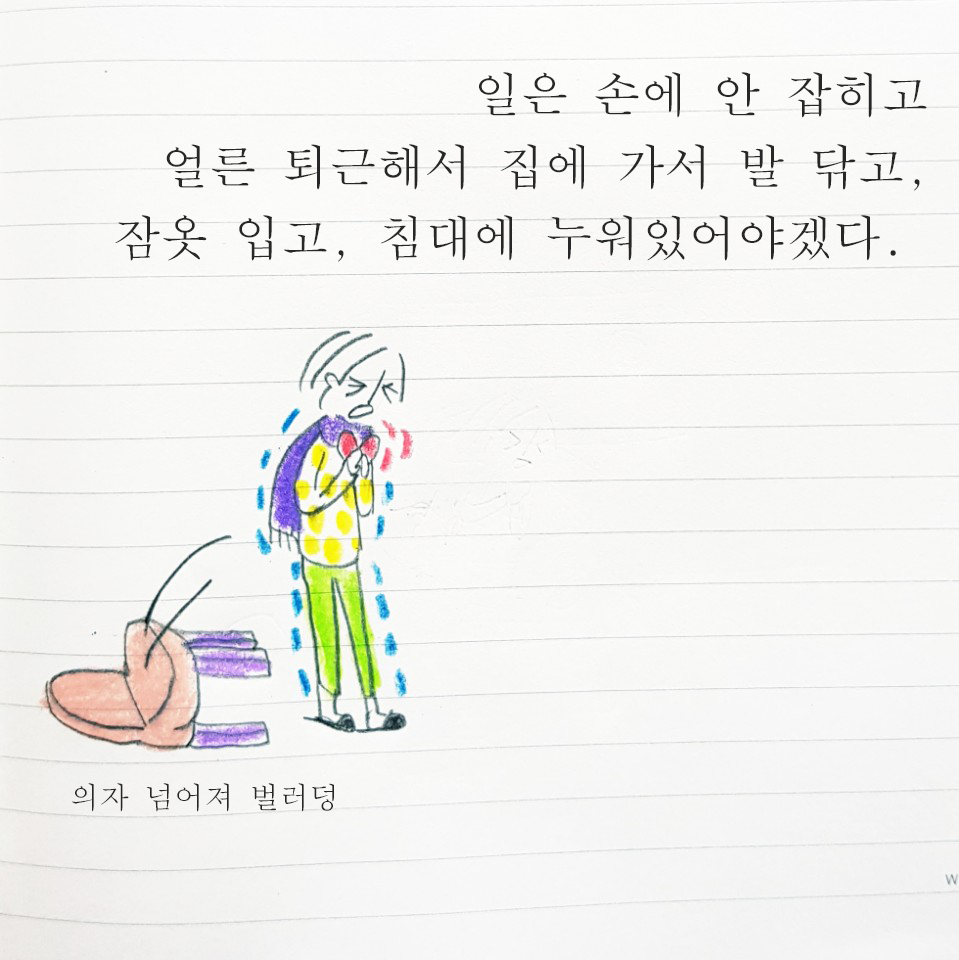 일은 손에 안 잡히고
얼른 퇴근해서 집에 가서 발 닦고,
잠옷 입고, 침대에 누워있어야겠다.
의자 넘어져 벌러덩
W